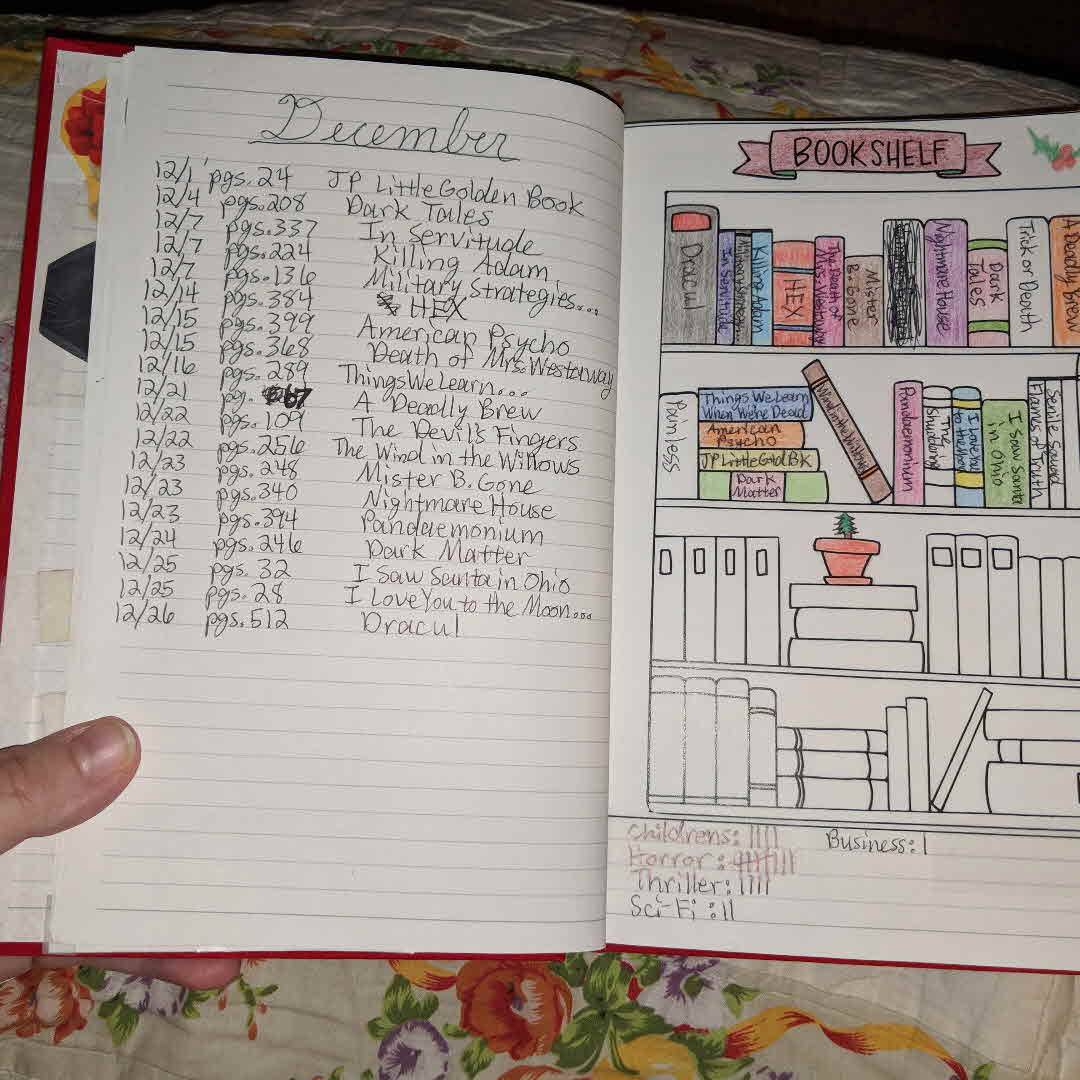 December
12/1 pgs. 24 JP Little Golden Book
12/4 pgs. 208 Dark Tales
12/7 pgs. 337 In Servitude
12/7 pgs. 224 Killing Adam
12/7 pgs. 136 Military Strategies...
12/14 pgs. 384 HEX
12/15 pgs. 399 American Psycho
12/15 pgs. 368 Death of Mrs. Westaway
12/16 pgs. 289 Things We Learn....
12/21 pg. 67 A Deadly Brew
12/22 pgs. 109 The Devil's Fingers
12/22 pgs. 256 The Wind in the Willows
12/23 pgs. 248 Mister B. Gone
12/23 pgs. 340 Nightmare House
12/23 pgs. 394 Pandaemonium
12/24 pgs. 246 Dark Matter
12/25 pgs. 32 I Saw Santa in Ohio
12/25 pgs. 28 I Love You to the Moon...
12/26 pgs. 512 Dracul
BOOKSHELF
Dracul
In Servitude
Killing Adam
HEX
The Death of
Mrs. Westaway
Mister
B. Gone
Nightmare House
Dark
Tales
Trick or Death
A Deadly Brew
Painless
Things We Learn
When We're Dead
American
Psycho
JP Little Gold BK
Dark
Matter
Wind in the Willows
Pandaemonium
The
Shuddering
I Love You
to the Moon
I Saw Santa
in Ohio
Childrens: ||||
Horror: |||||||||
Thriller: ||||
Sci-Fi: ||
Business: |